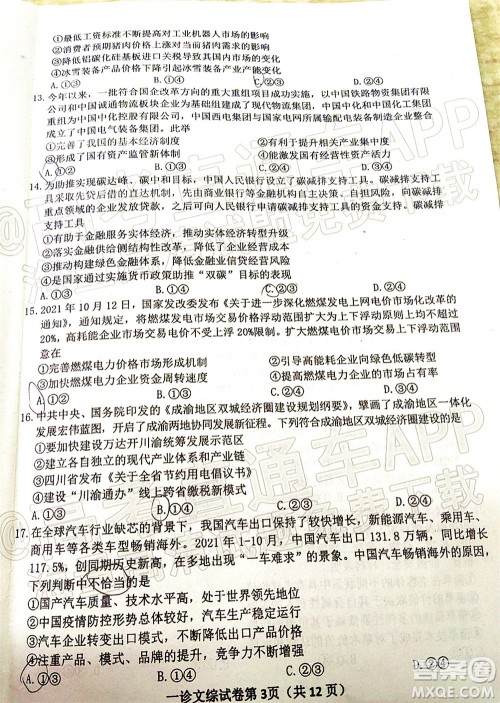 ①最低工资标准不断提高对工业机器人市场的影响
②消费者预期猪肉价格上涨对当前猪肉需求的影响
③降低铝碳化硅基板进口关税导致其国内市场的变化
④冰雪装备产品价格变化导致冰雪装备产业产能变化
A.①③ B.①④ C.②③ D.②④
13. 今年以来,一批符合条件的重大重组项目成功实施,以中国铁路物资集团有限公
司和中国诚通物流板块企业为基础组建成立中国物流集团,中国中化和中国化工
重组为中国中化控股有限公司,中国西电集团与国家电网所属输配电装备制造企业重组成
立了中国电气装备集团。此举
①完善了我国的基本经济制度 ②有利于提升相关产业集中度
③形成了国有资产监管新体制 ④能激发国有资本和国有企业活力
A.①③ B.①④ C.②③ D.②④
14. 为助推实现碳达峰、碳中和目标,中国人民银行设立碳减排支持工具。碳减排支持工
具采取先贷后借的直达机制,中国人民银行通过全国性金融机构,向碳减排
重点领域的企业发放贷款,之后可向中国人民银行申请资金支持。设立碳减排
支持工具
①有助于金融服务实体经济转型升级
②落实金融服务小微企业,降低了企业经营成本
③推动经济结构优化,影响企业投资与经营
④是国家通过实施货币政策助推“双碳”目标
A.①③ B.①④ C.②③ D.②④
15. 2021 年 10 月 12 日,国家发改委发布《关于进一步深化燃煤发电上网电价市场化改革的
通知》,规定燃煤发电市场交易价格浮动范围扩大为上下浮动原则上均不超过
20%,高耗能企业市场交易电价不受上浮 20%限制。扩大燃煤电价上下浮动范围
意在
①完善燃煤电力价格市场形成机制 ②引导高耗能企业提高能效
③加快燃煤电力企业资金周转速度 ④更好地发挥市场的决定性作用
A.①③ B.①④ C.②③ D.②④
16. 中共中央、国务院印发的《成渝地区双城经济圈建设规划纲要》,擘画了成渝地区双城经济圈建设的一体化
发展宏伟蓝图,开启了成渝两地协同发展新征程。下列符合成渝地区双城经济圈建设的是
①要加快建设万达开川渝统筹发展示范区
②建立各具特色的现代化产业体系和产业链
③四川省发布《关于全省节约用电倡议书》
④建设“川渝通办”线上跨省缴税新模式
A.①③ B.①④ C.②③ D.②④
17. 在全球汽车行业缺芯的背景下,我国汽车出口保持了较快增长,新能源汽车、乘用车、
商用车等各类车型畅销海外。2021 年 1-10 月,中国汽车出口 131.8 万辆,同比增长
117.5%,创同期历史新高,在多地出现“一车难求”的景象。中国汽车畅销海外的原因,
下列判断中不恰当的是
①国产汽车质量、技术水平高,处于世界领先地位
②中国疫情防控形势总体较好,汽车生产稳定运行
③汽车企业转变出口模式,不断提升汽车产品价格
④注重产品、模式、品牌升级,竞争优势不断增强
A.①③ B.①④ C.②③ D.②④
一诊文综试卷第 3页(共 12 页)
答案圈
MXQE.COM